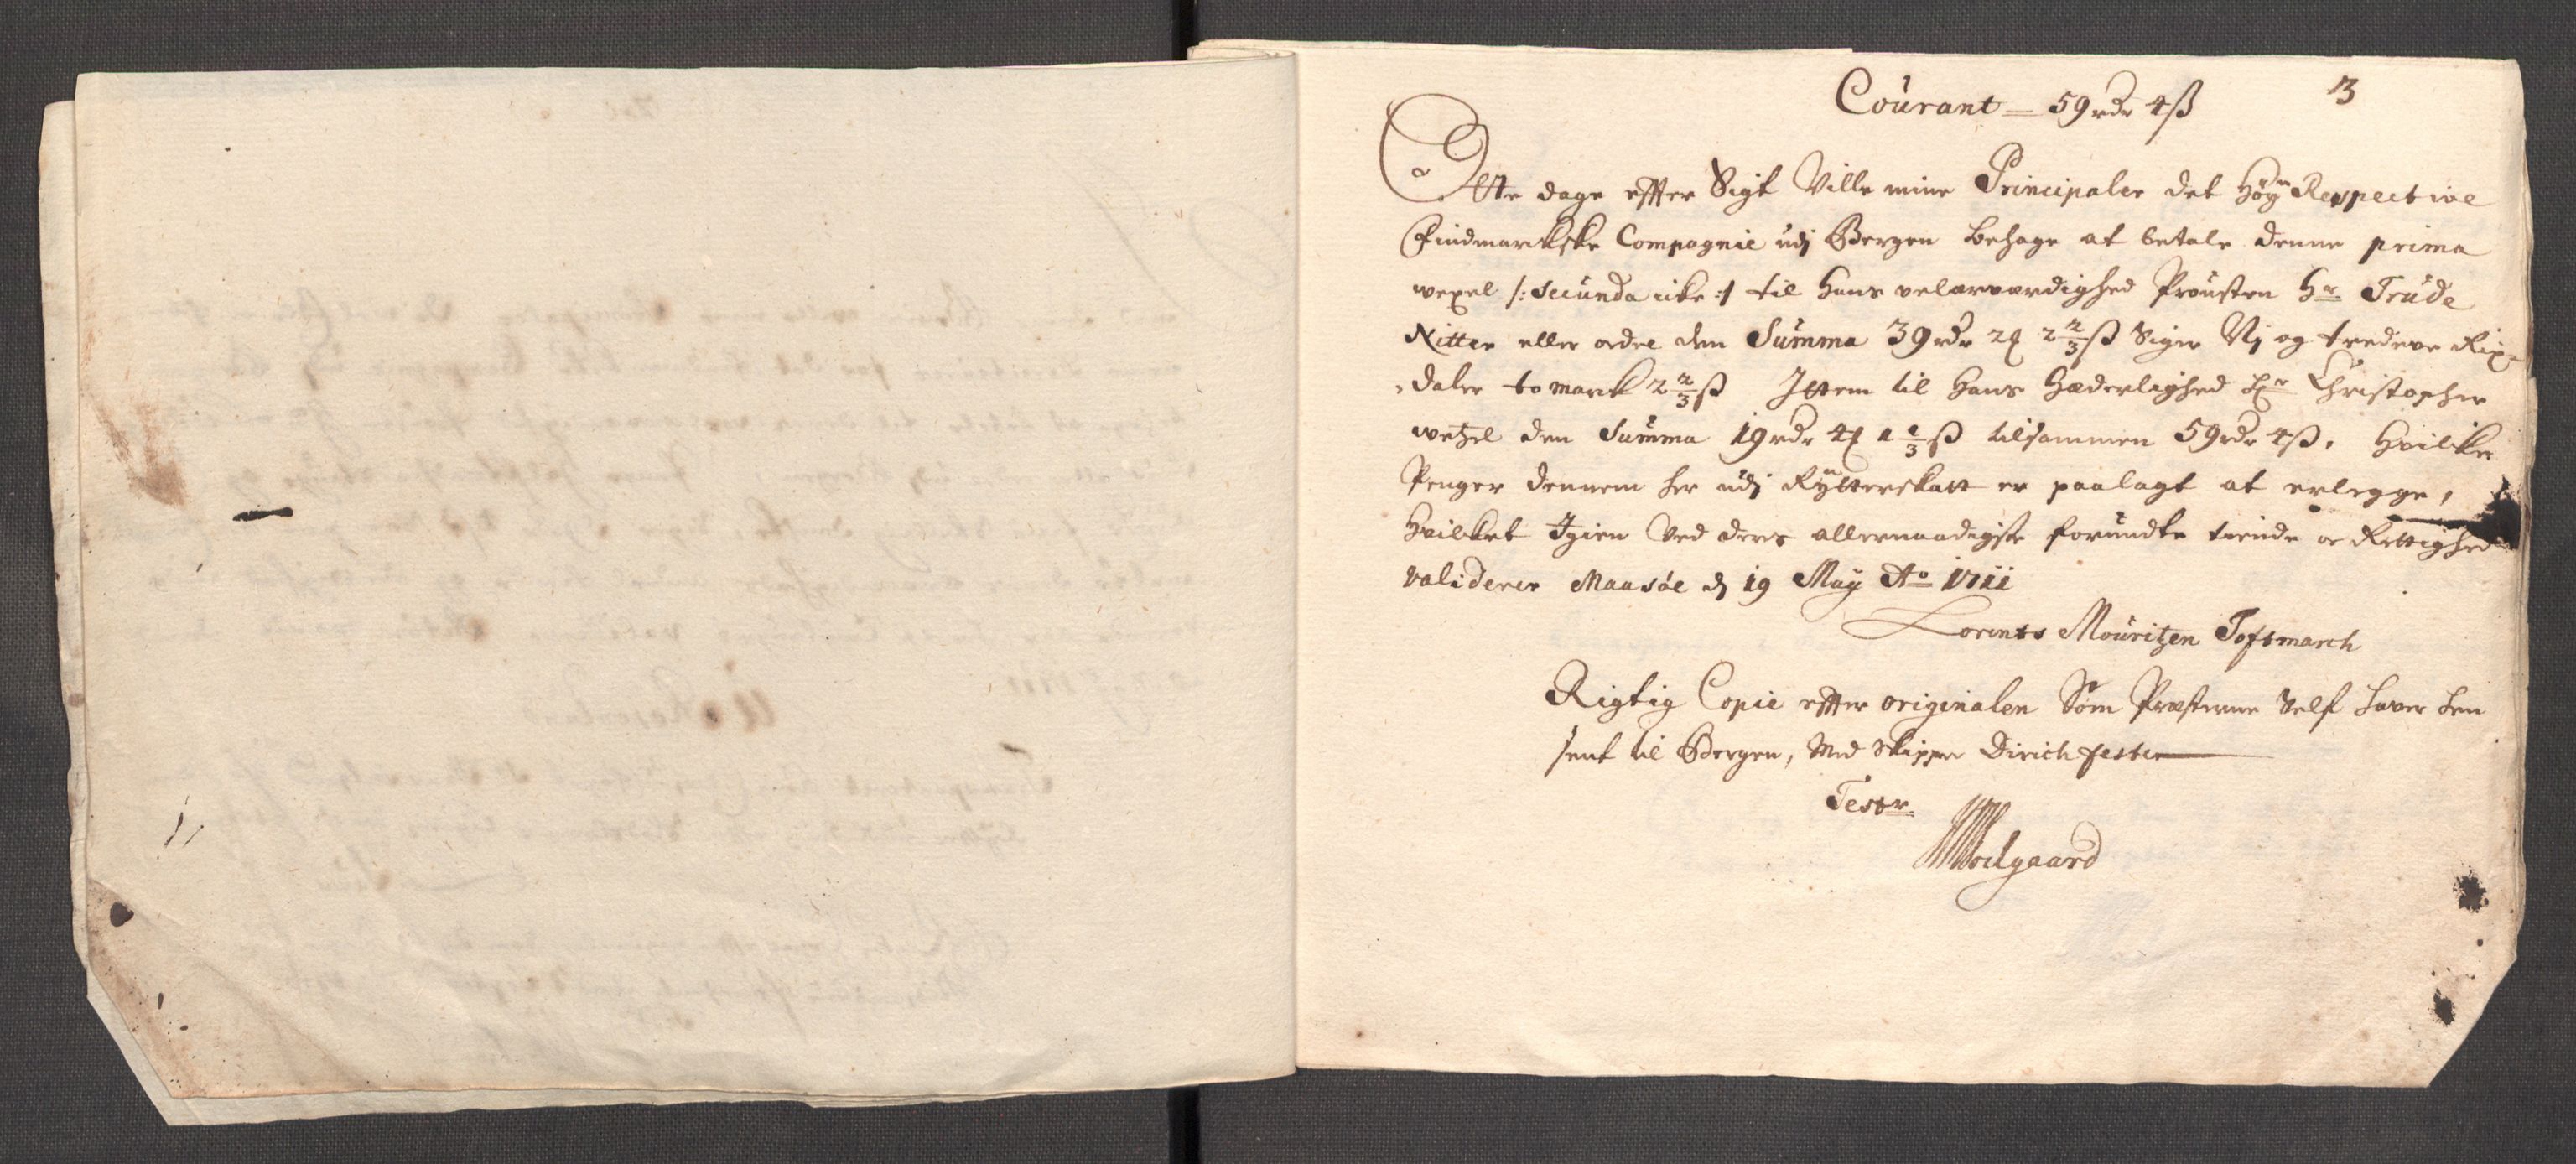 Courant = 59 rdr 4 ß
3
Otte dage effter Sigt Ville mine Principaler det Høy Respective
Findmarckske Compagnie udj Bergen behage at betale denne prima
wexel /: secunda icke :/ til hans velærværdighed Prousten Hr Trude
Nitter eller ordre den Summa 39 rdr 2 ꝟ 2 2/3 ß Siger Nj og tredeve Rix=
=daler to marck 2 2/3 ß Ittem til hans Hæderlighed Hr Christopher
wetzel den Summa 19 rdr 4 ꝟ 1 1/3 ß tilsammen 59 rdr 4 ß. Hvilke
Penger dennem her udj Rytterskatt er paalagt at erlegge,
Hvilket Igien Ved deres allernaadigste forundte tiende oc Rettighed
validerer Maasøe d 19 Maÿ Ao 1711
Lorents Mouritzen Toftmarch
Rigtig Copie effter originalen Som Præsterne Self haver hen
sent til Bergen, Med Skipper Dirich fester
Testr.